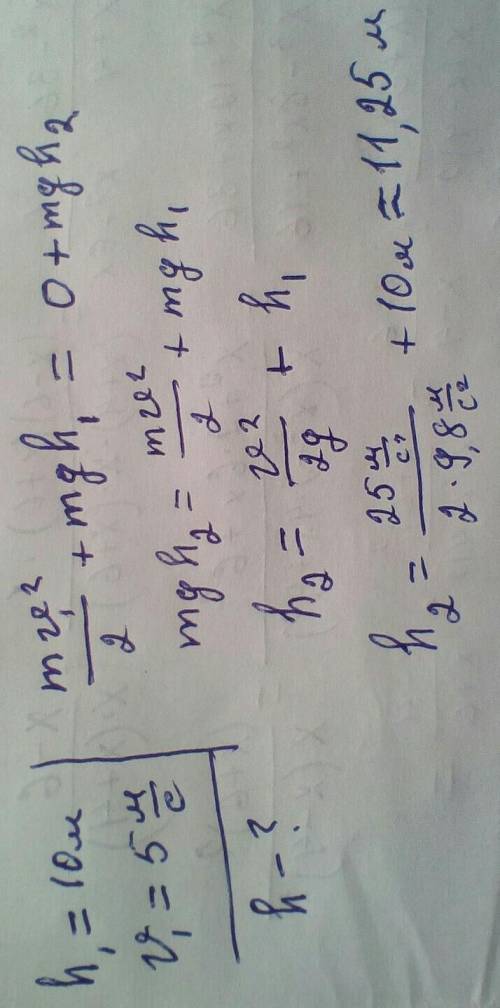 h₁ = 10 м
v₁ = 5 м/с
h – ?
mv₁²/2 + mgh₁ = 0 + mgh₂
mgh₂ = mv²/2 + mgh₁
h₂ = v²/2g + h₁
h₂ = 25 м/с² / 2·9,8 м/с² + 10 м ≈ 11,25 м